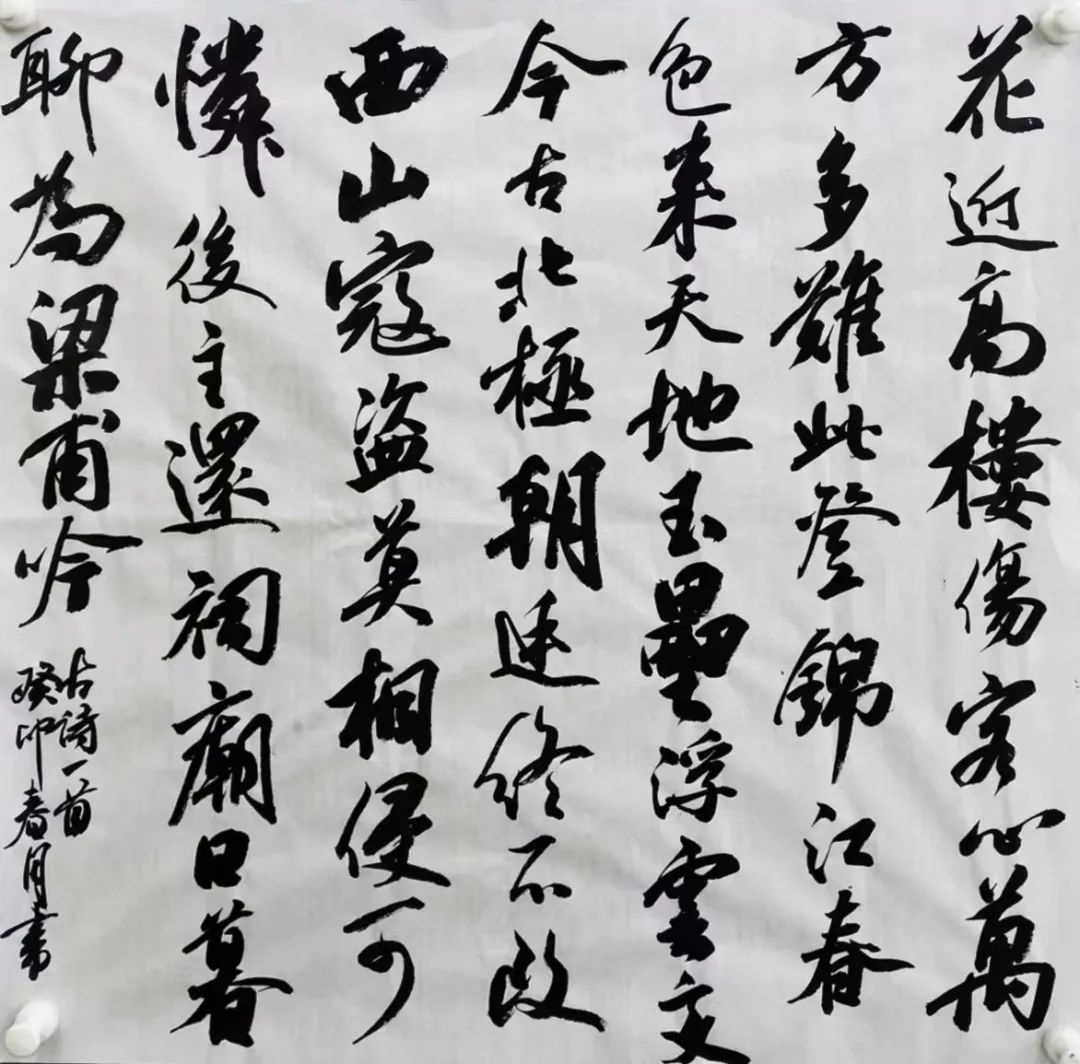 花近高樓傷客心萬
方多難此登錦江春
色来天地玉壘浮雲變
今古北極朝廷終不改
西山寇盜莫相侵可
憐後主還祠廟日暮
聊為梁甫吟
古詩一首
癸卯春月書